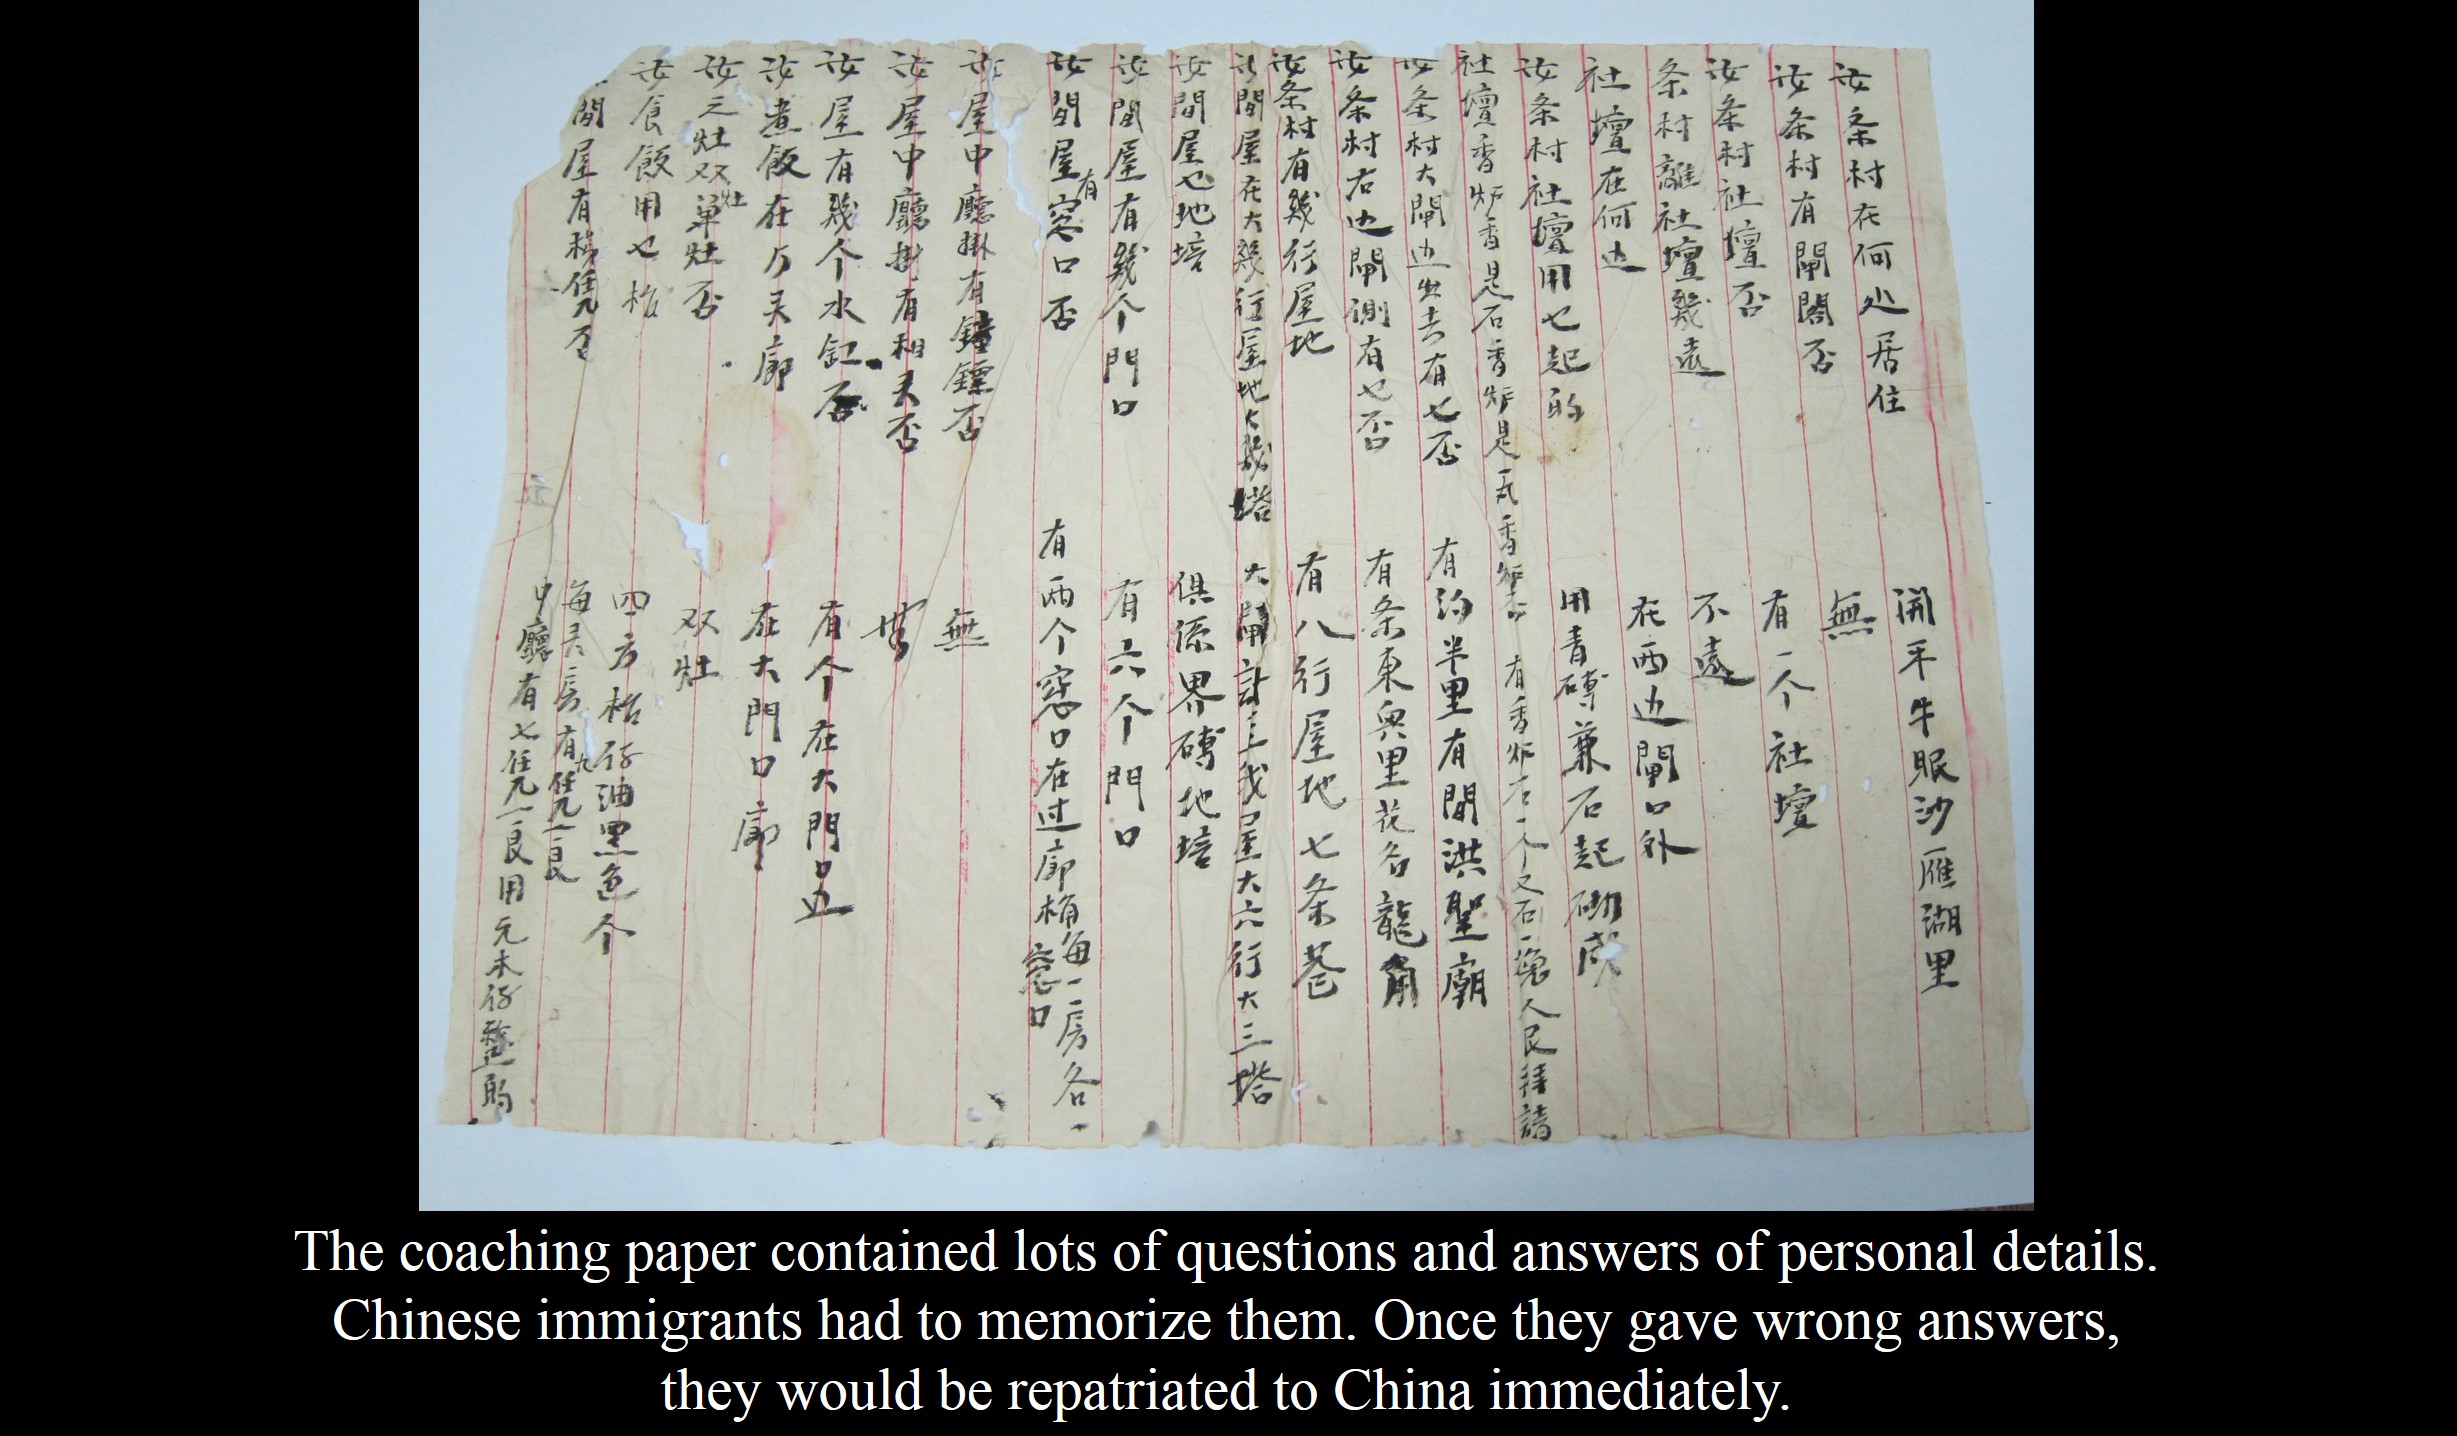 汝条村在何处居住 開平牛眠沙雁湖里
汝条村有閘閣否 無
汝条村社壇否 有一个社壇
条村離社壇幾遠 不遠
社壇在何边 在西边閘口外
汝条村社壇用乜起的 用青磚兼石起砌成
社壇香炉香是石香炉是瓦香炉否 有香炉石一个又石一塊人民拜請
汝条村大閘边出去有乜否 有約半里有間洪聖廟
汝条村右边閘側有乜否 有条東兴里花名龍角
汝条村有幾行屋地 有八行屋地七条巷
汝間屋在大幾行屋地大幾塔 大閘計三我屋大六行大三塔
汝間屋乜地培 俱係界磚地培
汝間屋有幾个門口 有六个門口
汝間屋有窓口否 有两个窓口在过廊桷每一房各一窓口
汝屋中廳掛有鐘鏢否 無
汝屋中廳掛有相否
汝屋有幾个水缸否 有个在大門口边
汝煮飯在廊 在大門口廊
汝灶双灶单灶否 双灶
汝食飯用乜枱 四方枱仔油黑色个
間屋有否 每房有九
中廳有七用元木仔整的
The coaching paper contained lots of questions and answers of personal details.
Chinese immigrants had to memorize them. Once they gave wrong answers,
they would be repatriated to China immediately.